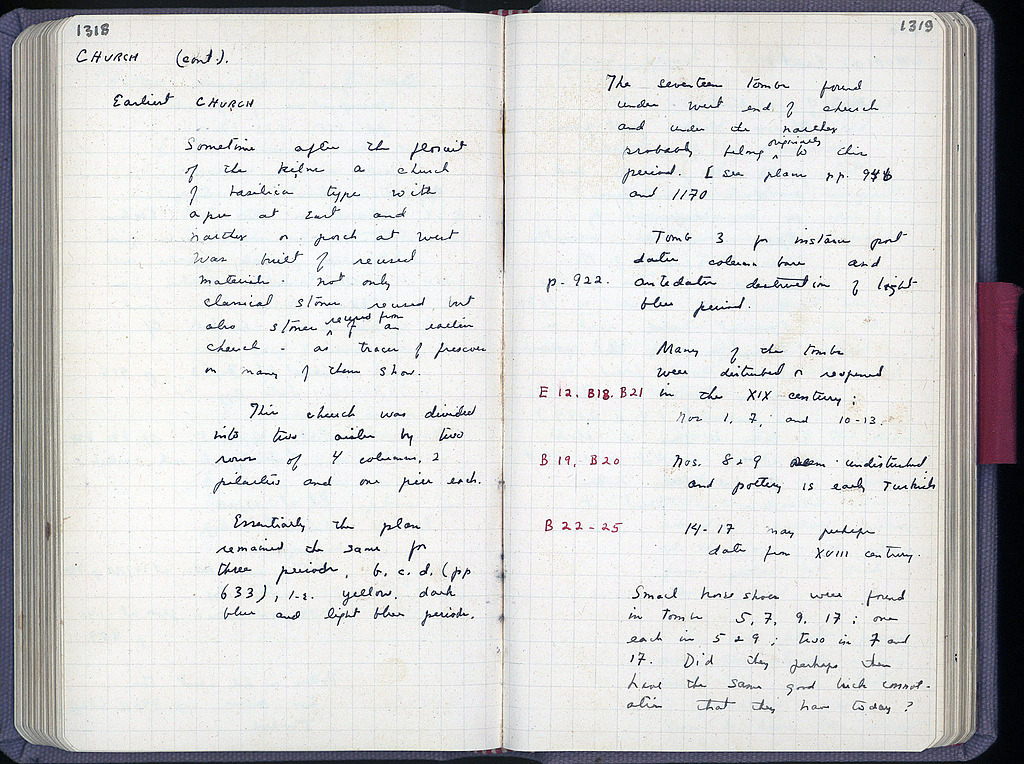 1318
CHURCH (cont.).
Earliest CHURCH
Sometime after the floruit
of the kilns a church
of basilica type with
apse at East and
narthex or porch at West
was built of reused
material. not only
classical stones reused but
also stones reused from of an earlier
church - as traces of frescoes
on many of them show.
This church was divided
into two aisles by two
rows of 4 columns, 2
pilasters and one pier each.
Essentially the plan
remained the same for
three periods, b. c. d. (pp
633), i.e. yellow, dark
blue and light blue periods.
1319
The seventeen tombs found
under west end of church
and under the narthex
probably belong originally to this
period. [see plans pp.
and 1170
Tomb 3 for instance post
dates column base and
p. 922. antedates destruction of light
blue period.
Many of the tombs
were disturbed or reopened
E 12, B18, B21 in the XIX century:
Nos 1, 7, and 10-13.
B 19, B20 Nos. 8 & 9 seem undisturbed
and pottery is early Turkish
B 22-25 14-17 may perhaps
date from XVIII century.
Small horse shoes were found
in Tombs 5, 7, 9, 17; one
each in 5 & 9; two in 7 and
17. Did they perhaps then
have the same good luck connot-
ation that they have today?